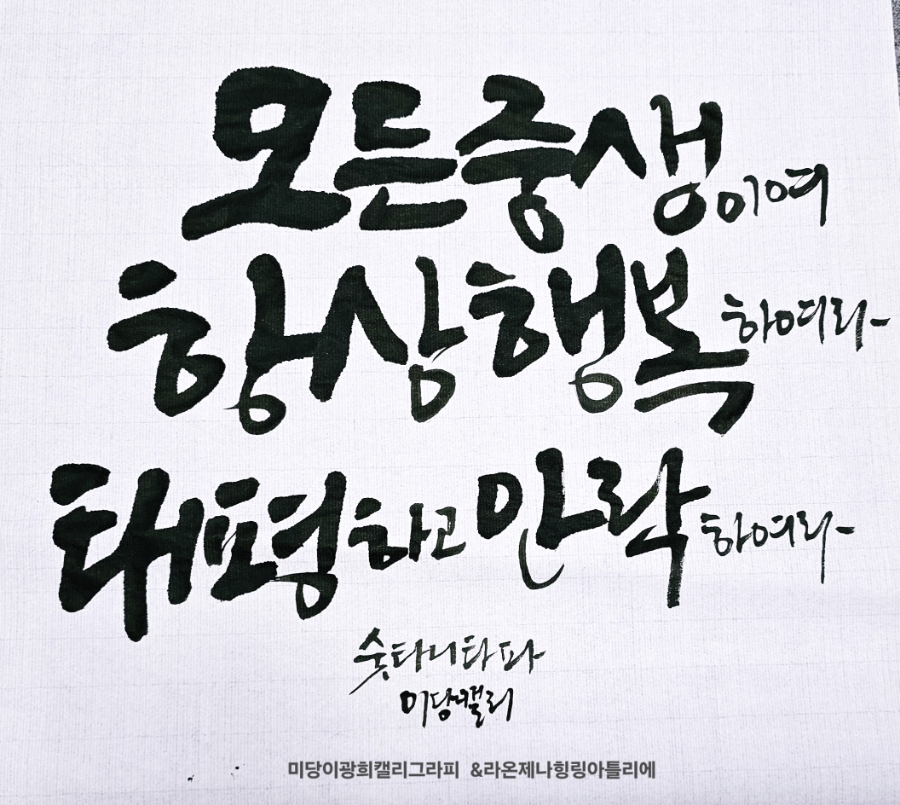 모든중생이여
항상행복하여라
태평하고안락하여라
숫타니타파
미당캘리
미당이광희캘리그라피 &라온제나힝링아틀리에